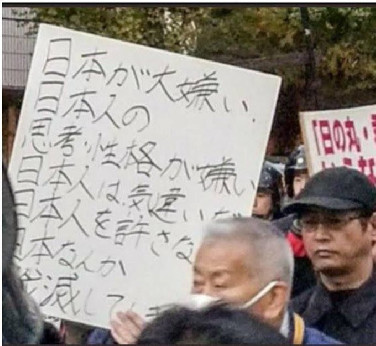 日本が大嫌い、
日本人の
思考・性格が嫌い
日本人は気違いだ
日本人を許さな
日本なんか
滅して
「日の丸・